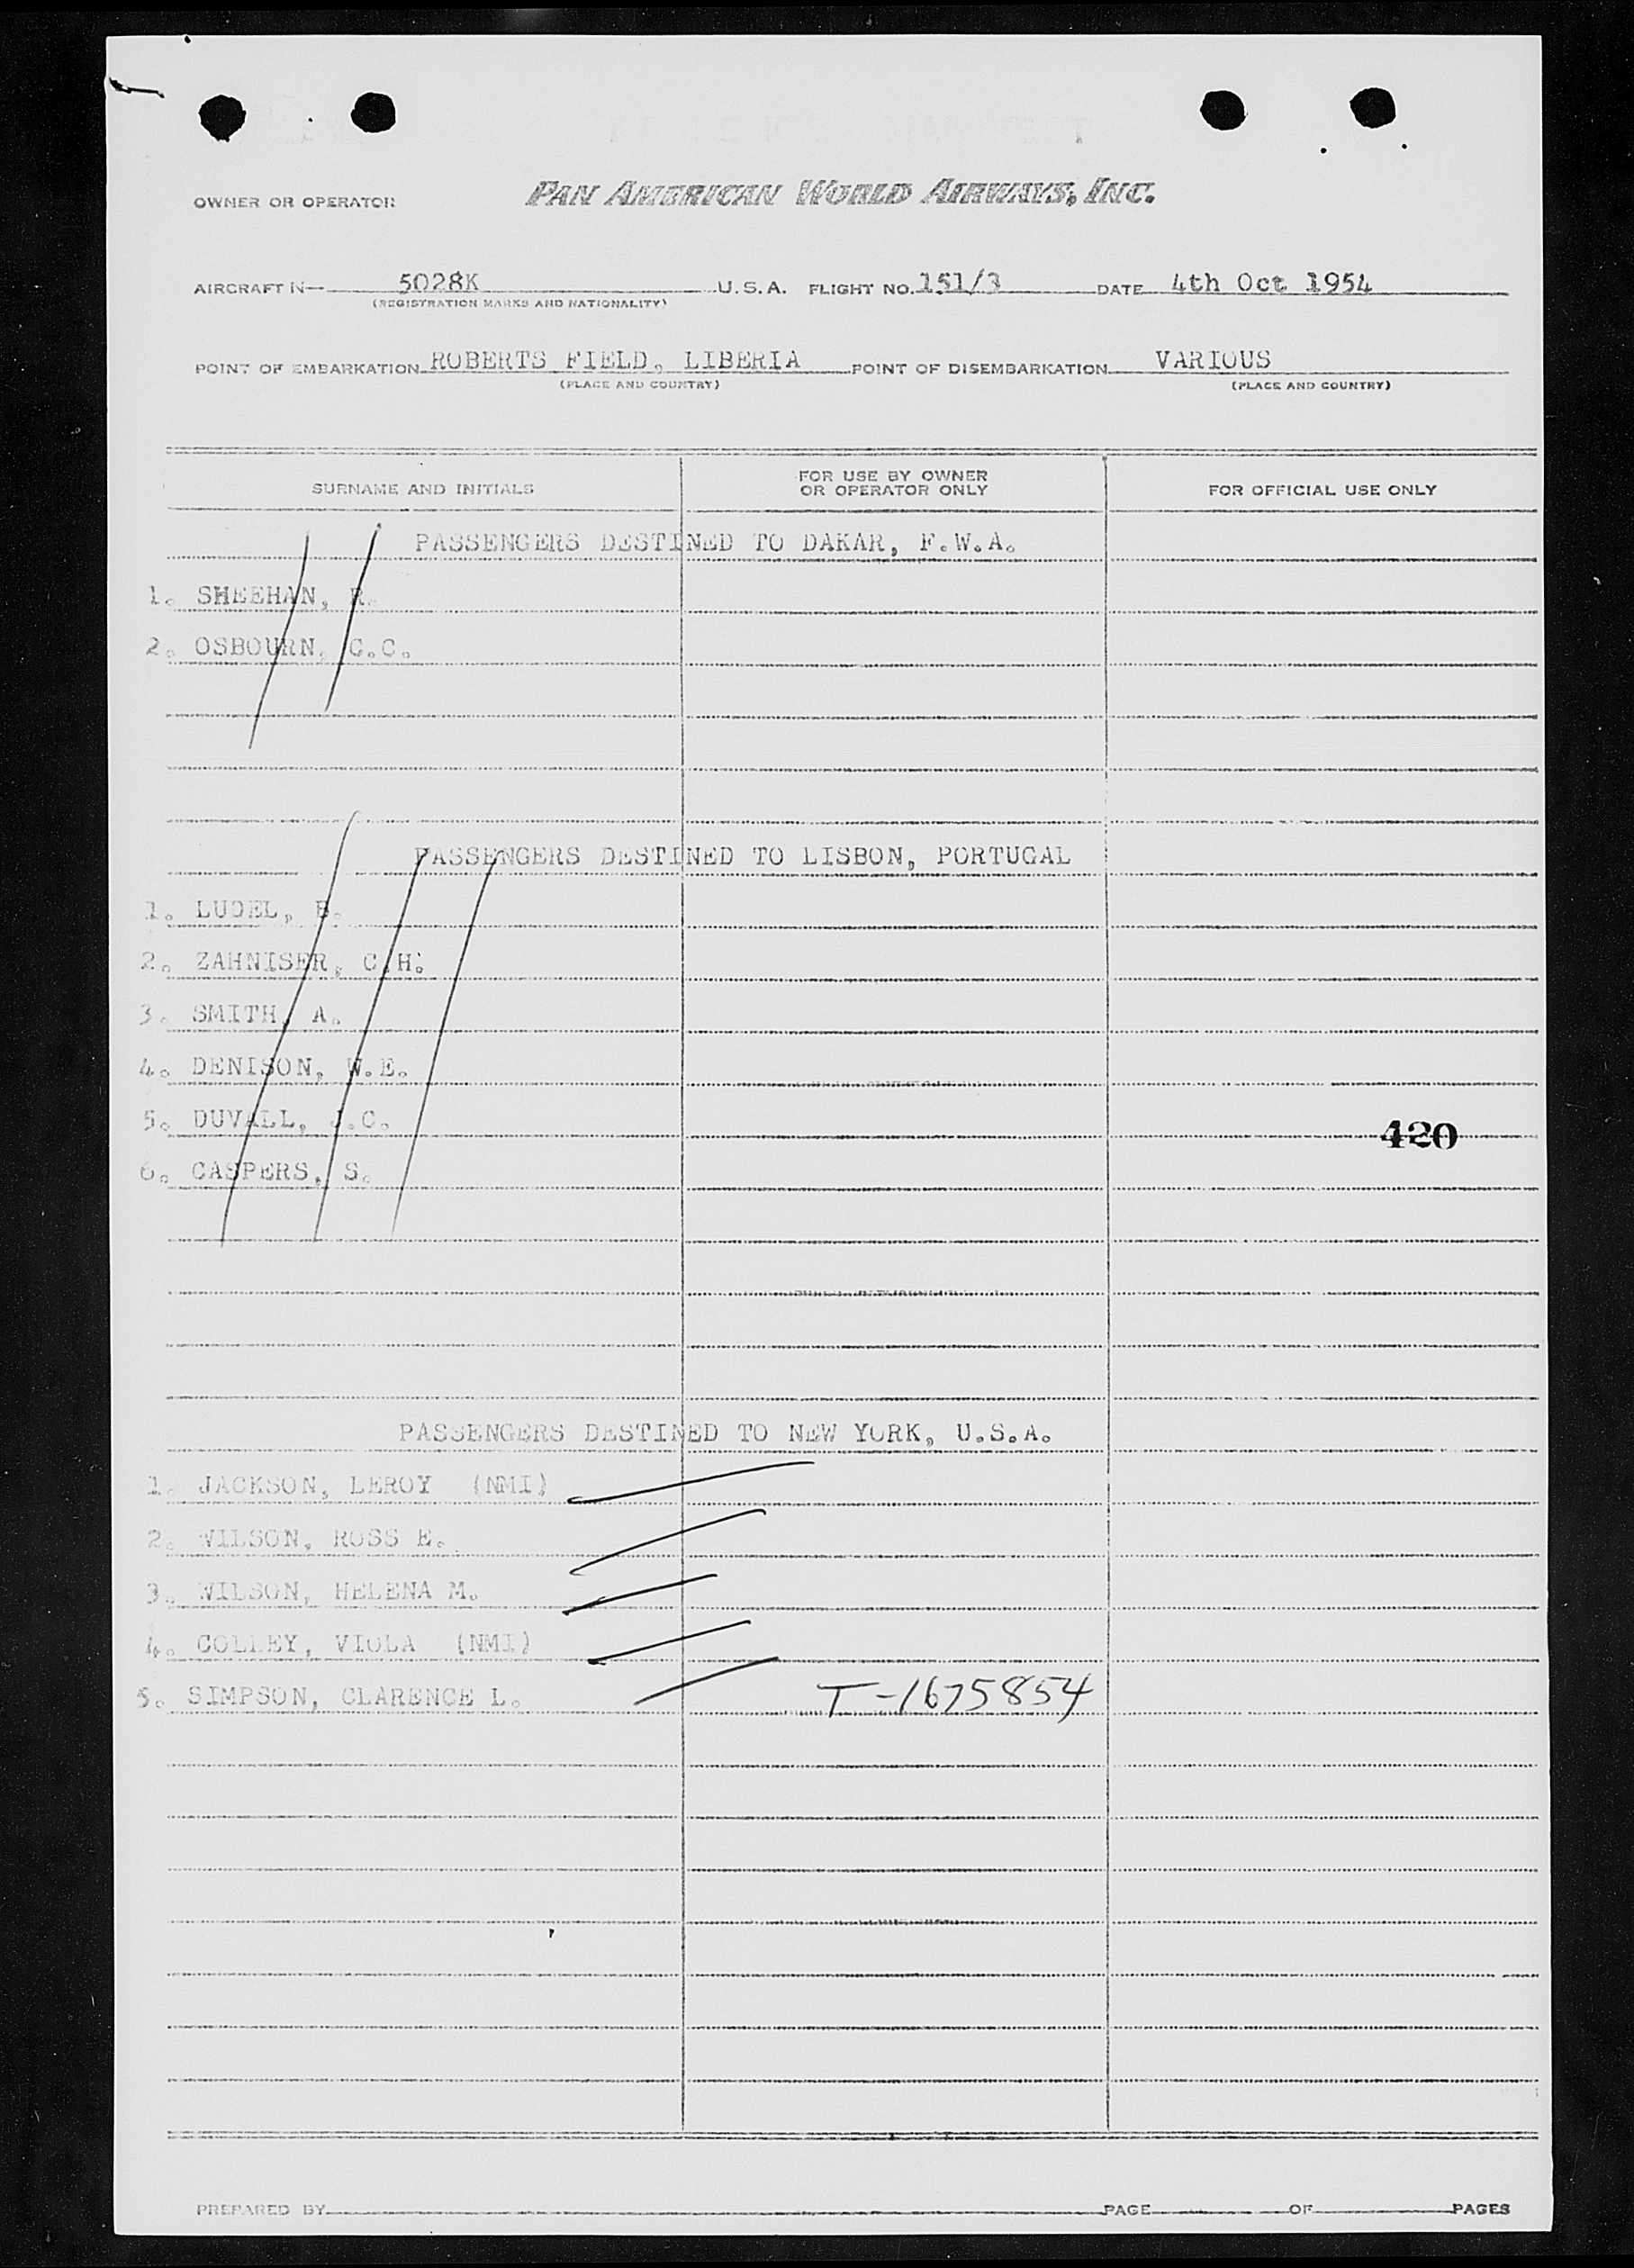 OWNER OR OPERATOR PAN AMERICAN WORLD AIRWAYS, INC.
AIRCRAFT N- 5028K U.S.A. FLIGHT NO. 151/3 DATE 4th Oct 1954
(REGISTRATION MARKS AND NATIONALITY)
POINT OF EMBARKATION ROBERTS FIELD, LIBERIA POINT OF DISEMBARKATION VARIOUS
(PLACE AND COUNTRY) (PLACE AND COUNTRY)
SURNAME AND INITIALS FOR USE BY OWNER OR OPERATOR ONLY FOR OFFICIAL USE ONLY
PASSENGERS DESTINED TO DAKAR, F.W.A.
1. SHEEHAN, R.
2. OSBOURN, C.C.
PASSENGERS DESTINED TO LISBON, PORTUGAL
1. B.
2. ZAHNISER, C.H.
3. SMITH, A.
4. DENISON, W.E.
5. DUVALL, J.C.
420
6. CASPERS, S.
PASSENGERS DESTINED TO NEW YORK, U.S.A.
1. JACKSON, LEROY (NMI)
2. WILSON, ROSS E.
3. WILSON, HELENA M.
4. COLLEY, VIOLA (NMI)
5. SIMPSON, CLARENCE L. T-1675854
PREPARED BY PAGE OF PAGES